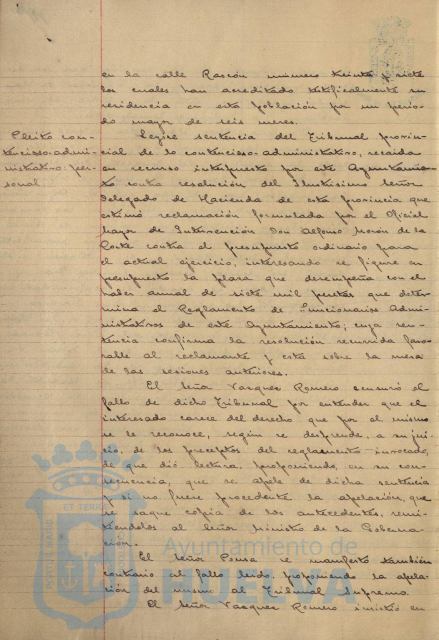 en la calle Rascón número treinta y siete
los cuales han acreditado testificalmente su
residencia en esta población por un perio-
do mayor de seis meses.
Pleito con-
tencioso-admi-
nistrativo per-
sonal
Leyose sentencia del Tribunal provin-
cial de lo contencioso-administrativo, recaida
en recurso interpuesto por este Ayuntamien-
to contra resolución del Ilustrísimo Señor
Delegado de Hacienda de esta provincia que
estimó reclamación formulada por el Oficial
Mayor de Intervención Don Alfonso Morón de la
Corte contra el presupuesto ordinario para
el actual ejercicio, interesando se figure en
presupuesto la plaza que desempeña con el
haber anual de siete mil pesetas que deter-
mina el Reglamento de Funcionarios Admi-
nistrativos de este Ayuntamiento; cuya sen-
tencia confirma la resolución recurrida favo-
rable al reclamante y está sobre la mesa
de las sesiones anteriores.
El señor Vazquez Romero censuró el
fallo de dicho Tribunal por entender que el
interesado carece del derecho que por el mismo
se le reconoce, según se desprende, a su jui-
cio, de los preceptos del reglamento invocado,
de que dió lectura, proponiendo, en su con-
secuencia, que se apele de dicha sentencia
y si no fuere procedente la apelación, que
se saque copia de los antecedentes, remi-
tiendolos al Señor Ministro de la Goberna-
ción.
El señor Ponsa se manifestó también
contrario al fallo leido, proponiendo la apela-
ción del mismo al Tribunal Supremo.
El señor Vazquez Romero insistió en
Ayuntamiento de
HUELVA